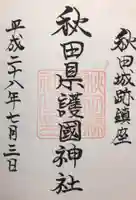 秋田城跡鎮座
秋田県護國神社
平成二十八年七月三日